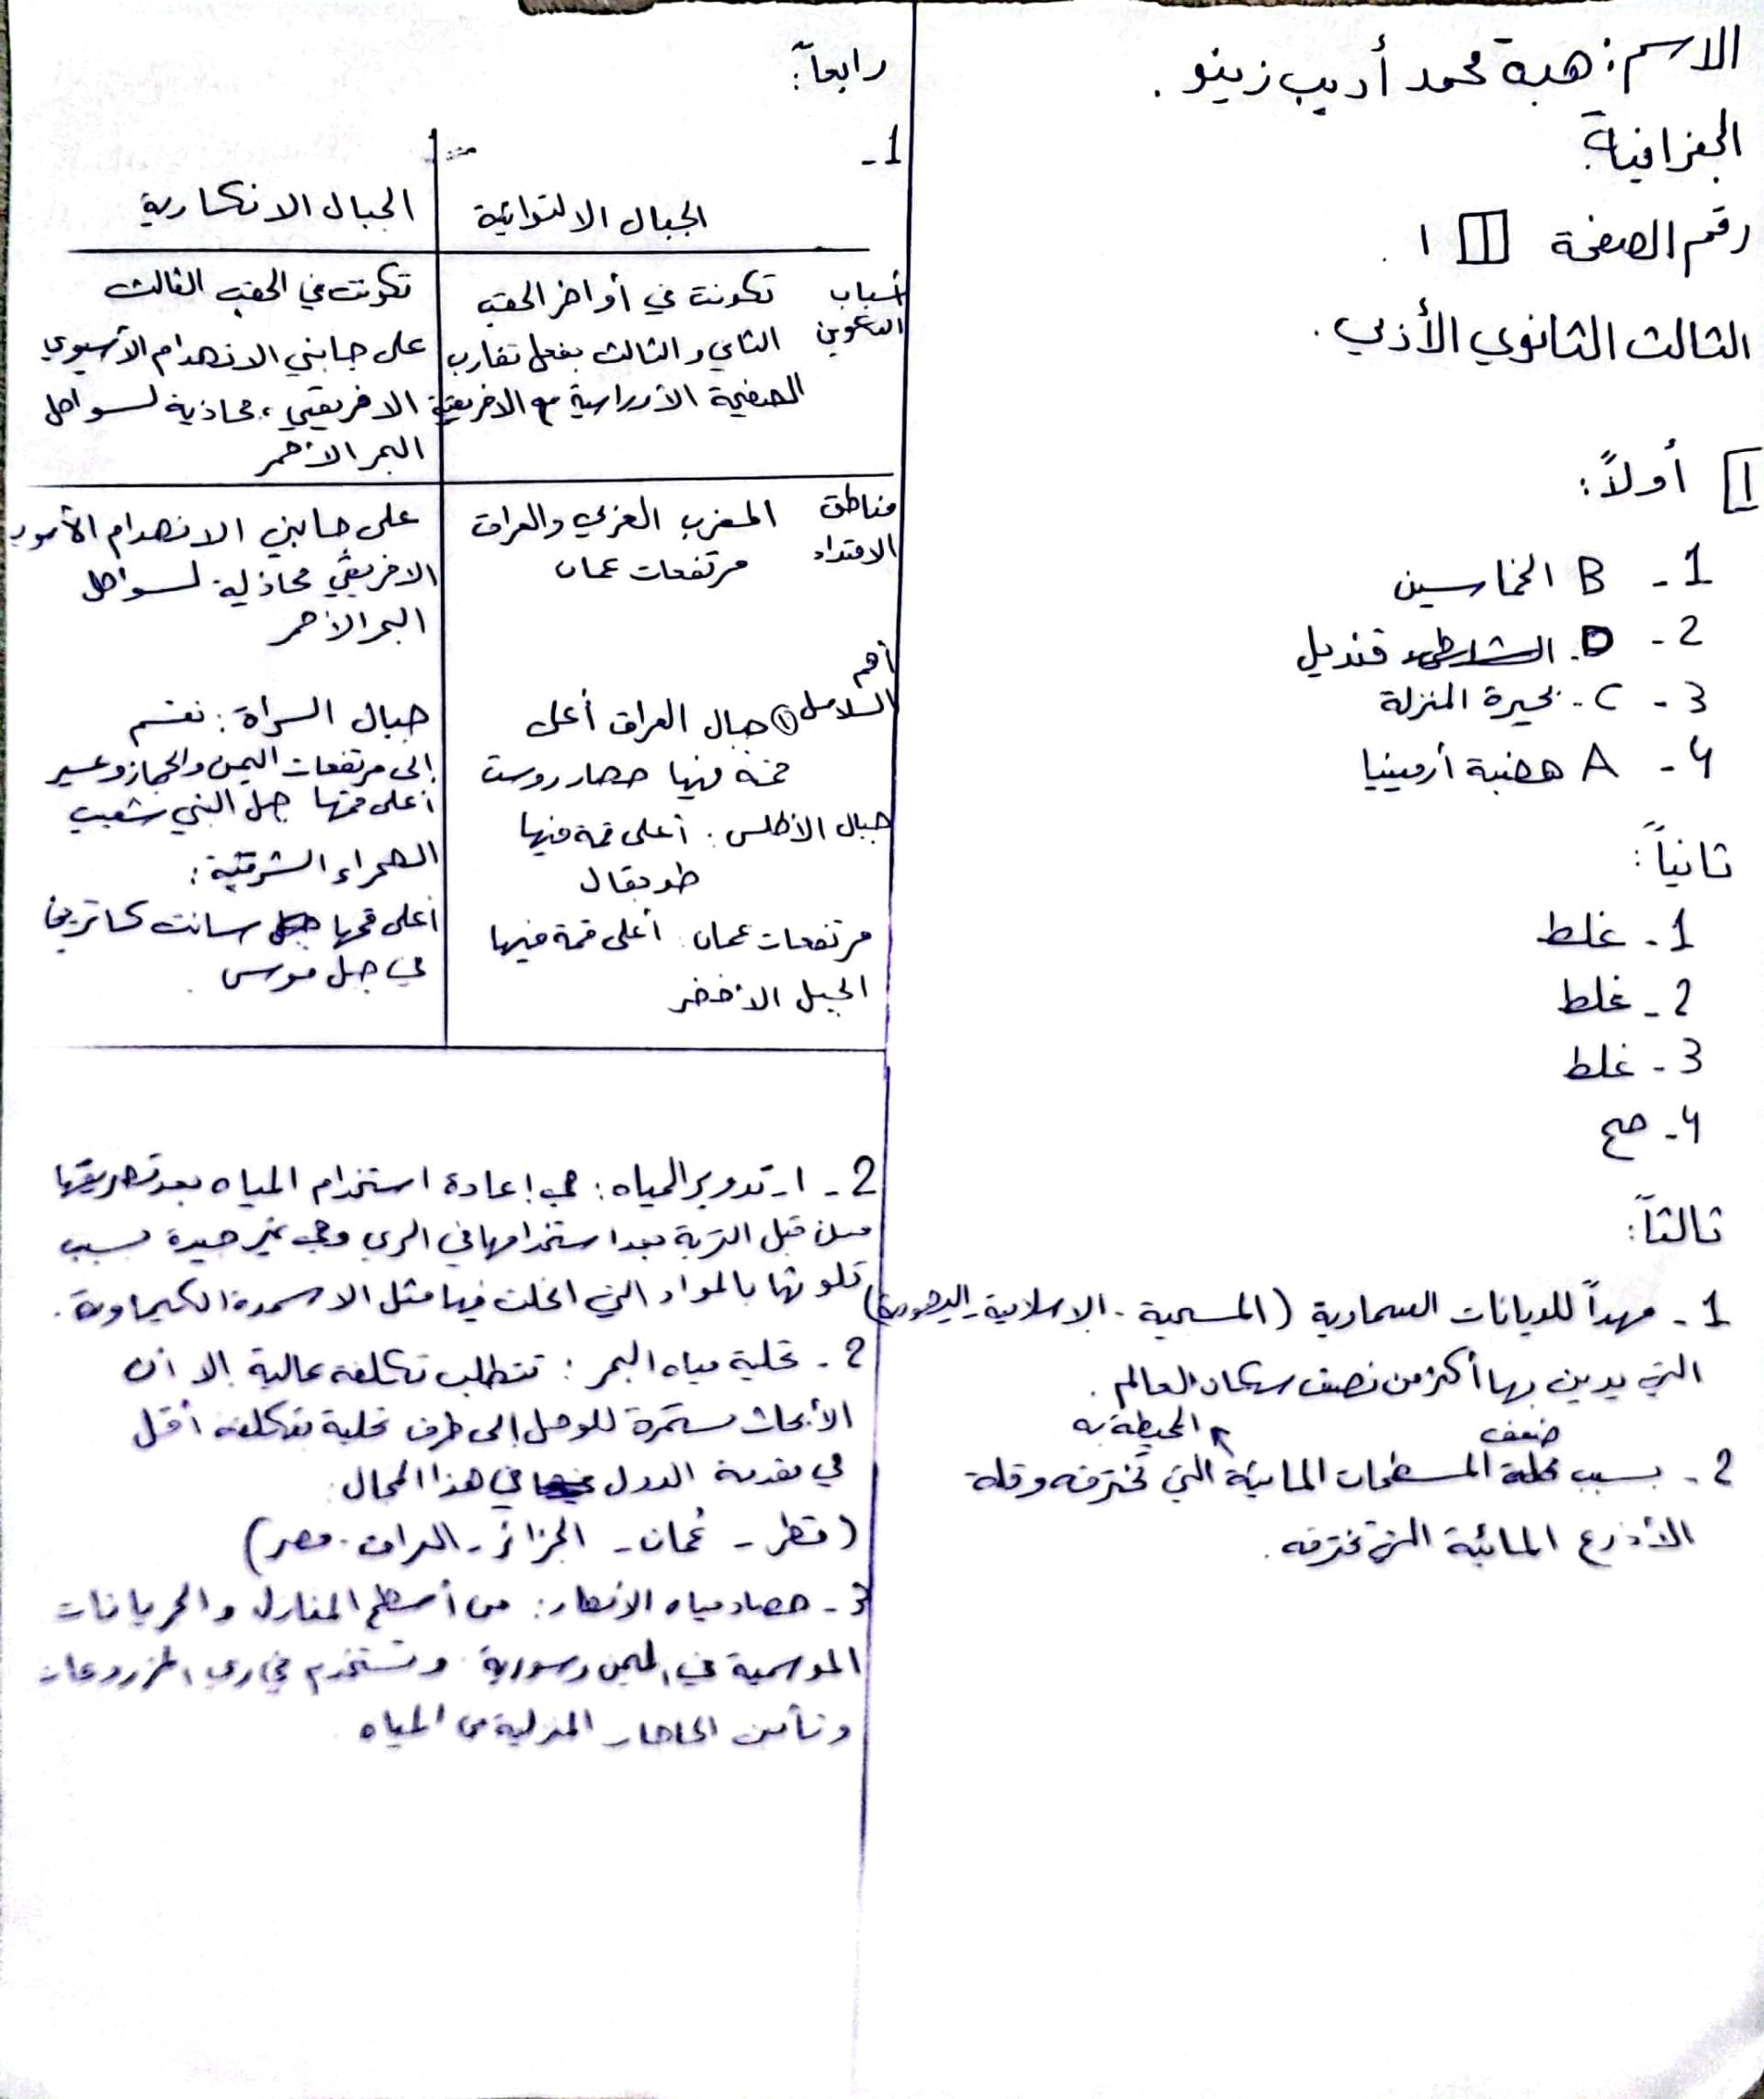 الاسم: هبة محمد أديب زينو .
الجغرافية
رقم الصفحة 1 .
الثالث الثانوي الأدبي .
1 أولاً:
1 - B الخماسين
2 - D. قنديل
3 - C - بحيرة المنزلة
4 - A هضبة أرمينيا
ثانياً:
1 - غلط
2 - غلط
3 - غلط
4 - صح
ثالثاً:
1 - مهداً للديانات السماوية (المسيحية - الاسلامية - اليهودية)
التي يدين بها أكثر من نصف سكان العالم .
ضعف المحيطة به
2 - بسبب المسطحات المائية التي تخترقه وقلة
الأذرع المائية التي تخترقه .
رابعاً:
1 -
الجبال الالتوائية | الجبال الانكسارية
أسباب التكوين
تكونت في أواخر الحقب
الثاني والثالث بفعل تقارب
الصفيحة الأوراسية مع الافريقية
تكونت في الحقب الثالث
على جانبي الانهدام الآسيوي
الافريقي ، محاذية لسواحل
البحر الأحمر
مناطق الامتداد
المغرب العربي والعراق
مرتفعات عمان
على جانبي الانهدام الآسيوي
الافريقي محاذية لسواحل
البحر الأحمر
أهم السلاسل
① جبال العراق أعلى
قمة فيها حصار روست
جبال الأطلس : أعلى قمة فيها
طوبقال
مرتفعات عمان : أعلى قمة فيها
الجبل الأخضر
جبال السراة : تقسم
إلى مرتفعات اليمن والحجاز وعسير
أعلى قمتها جبل النبي شعيب
الصحراء الشرقية :
أعلى قمها سانت كاترين
في جبل موسى .
2 - 1 - تدوير المياه : هي إعادة استخدام المياه بعد تصريفها
من قبل التربة بعد استخدامها في الري وهي غير جيدة بسبب
تلوثها بالمواد التي انحلت فيها مثل الاسمدة الكيماوية .
2 - تحلية مياه البحر : تتطلب تكلفة عالية إلا أن
الأبحاث مستمرة للوصل إلى طرق تحلية بتكلفة أقل
في مقدمة الدول في هذا المجال :
(قطر - عُمان - الجزائر - العراق - مصر)
3 - حصاد مياه الأمطار : من أسطح المنازل والجريانات
الموسمية في اليمن وسورية وتستخدم في ري المزروعات
وتأمين الحاجات المنزلية من المياه